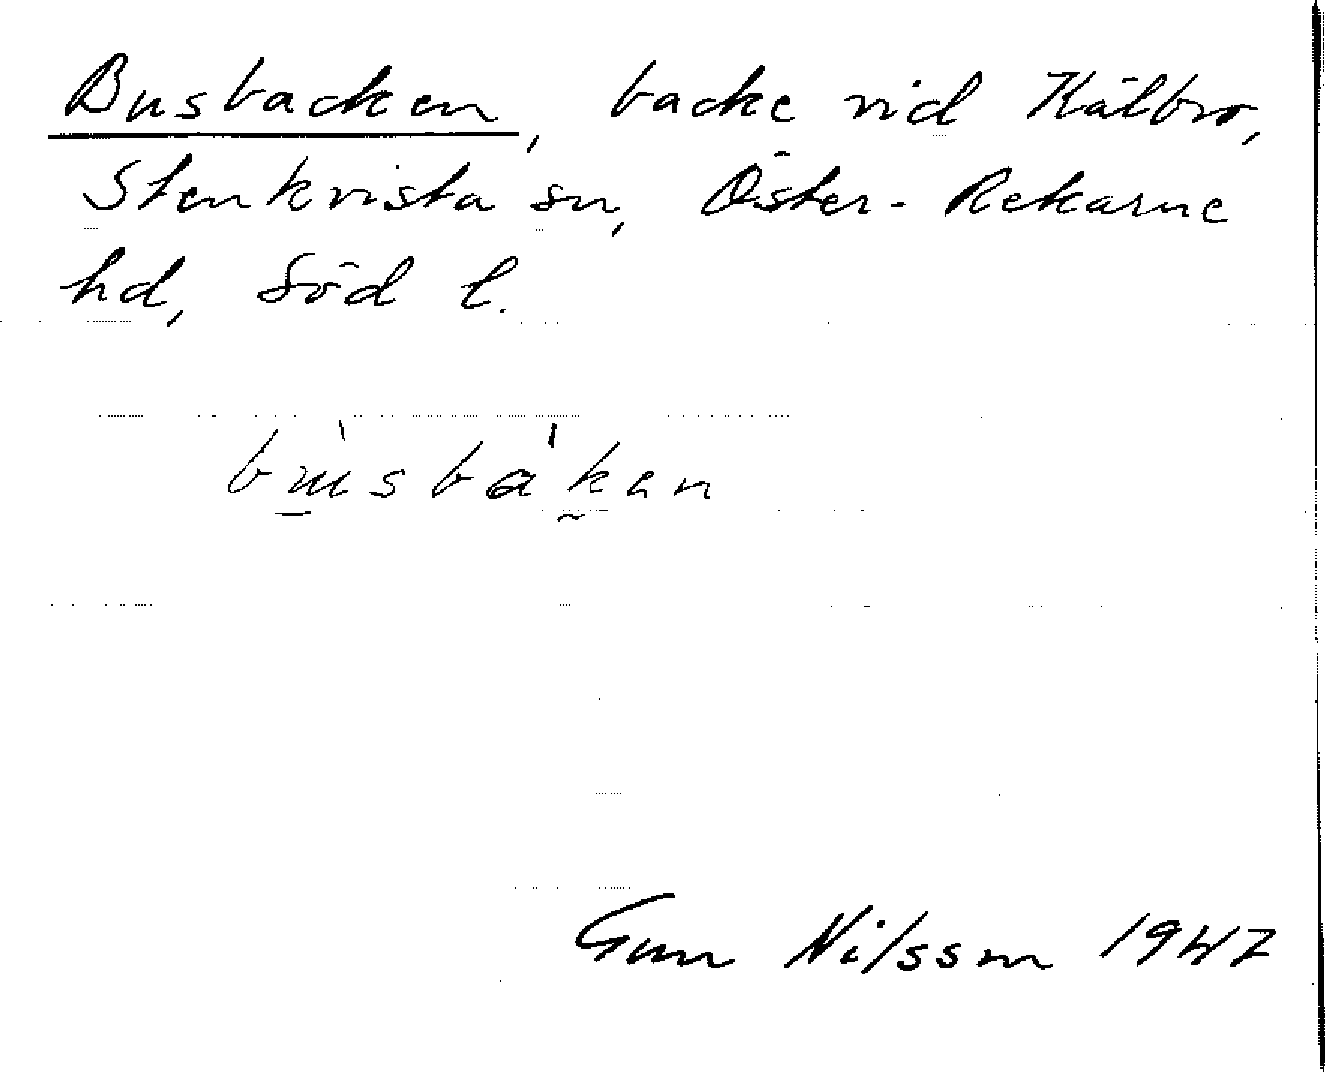 Busbacken, backe vid Kälbro,
Stenkvista sn, Öster-Rekarne
hd, Söd l.
Gun Nilsson 1947